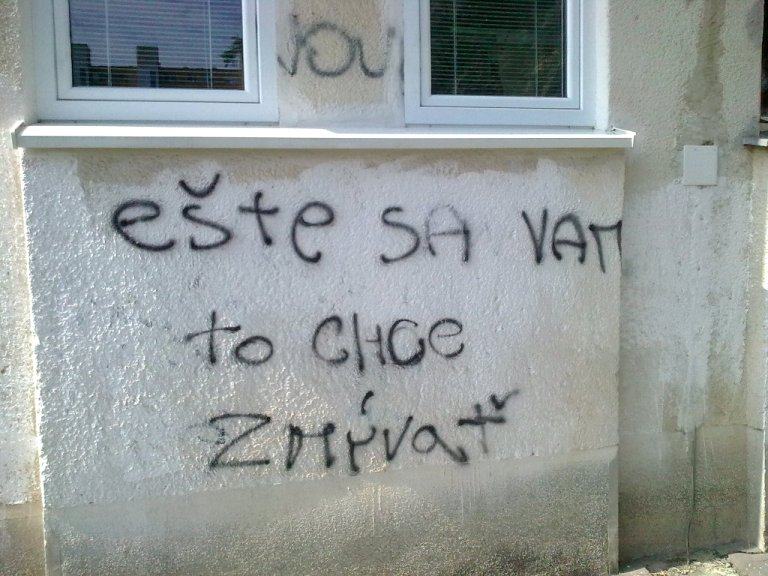 ešte SA VAM
to CHCE
ZMÝVAť